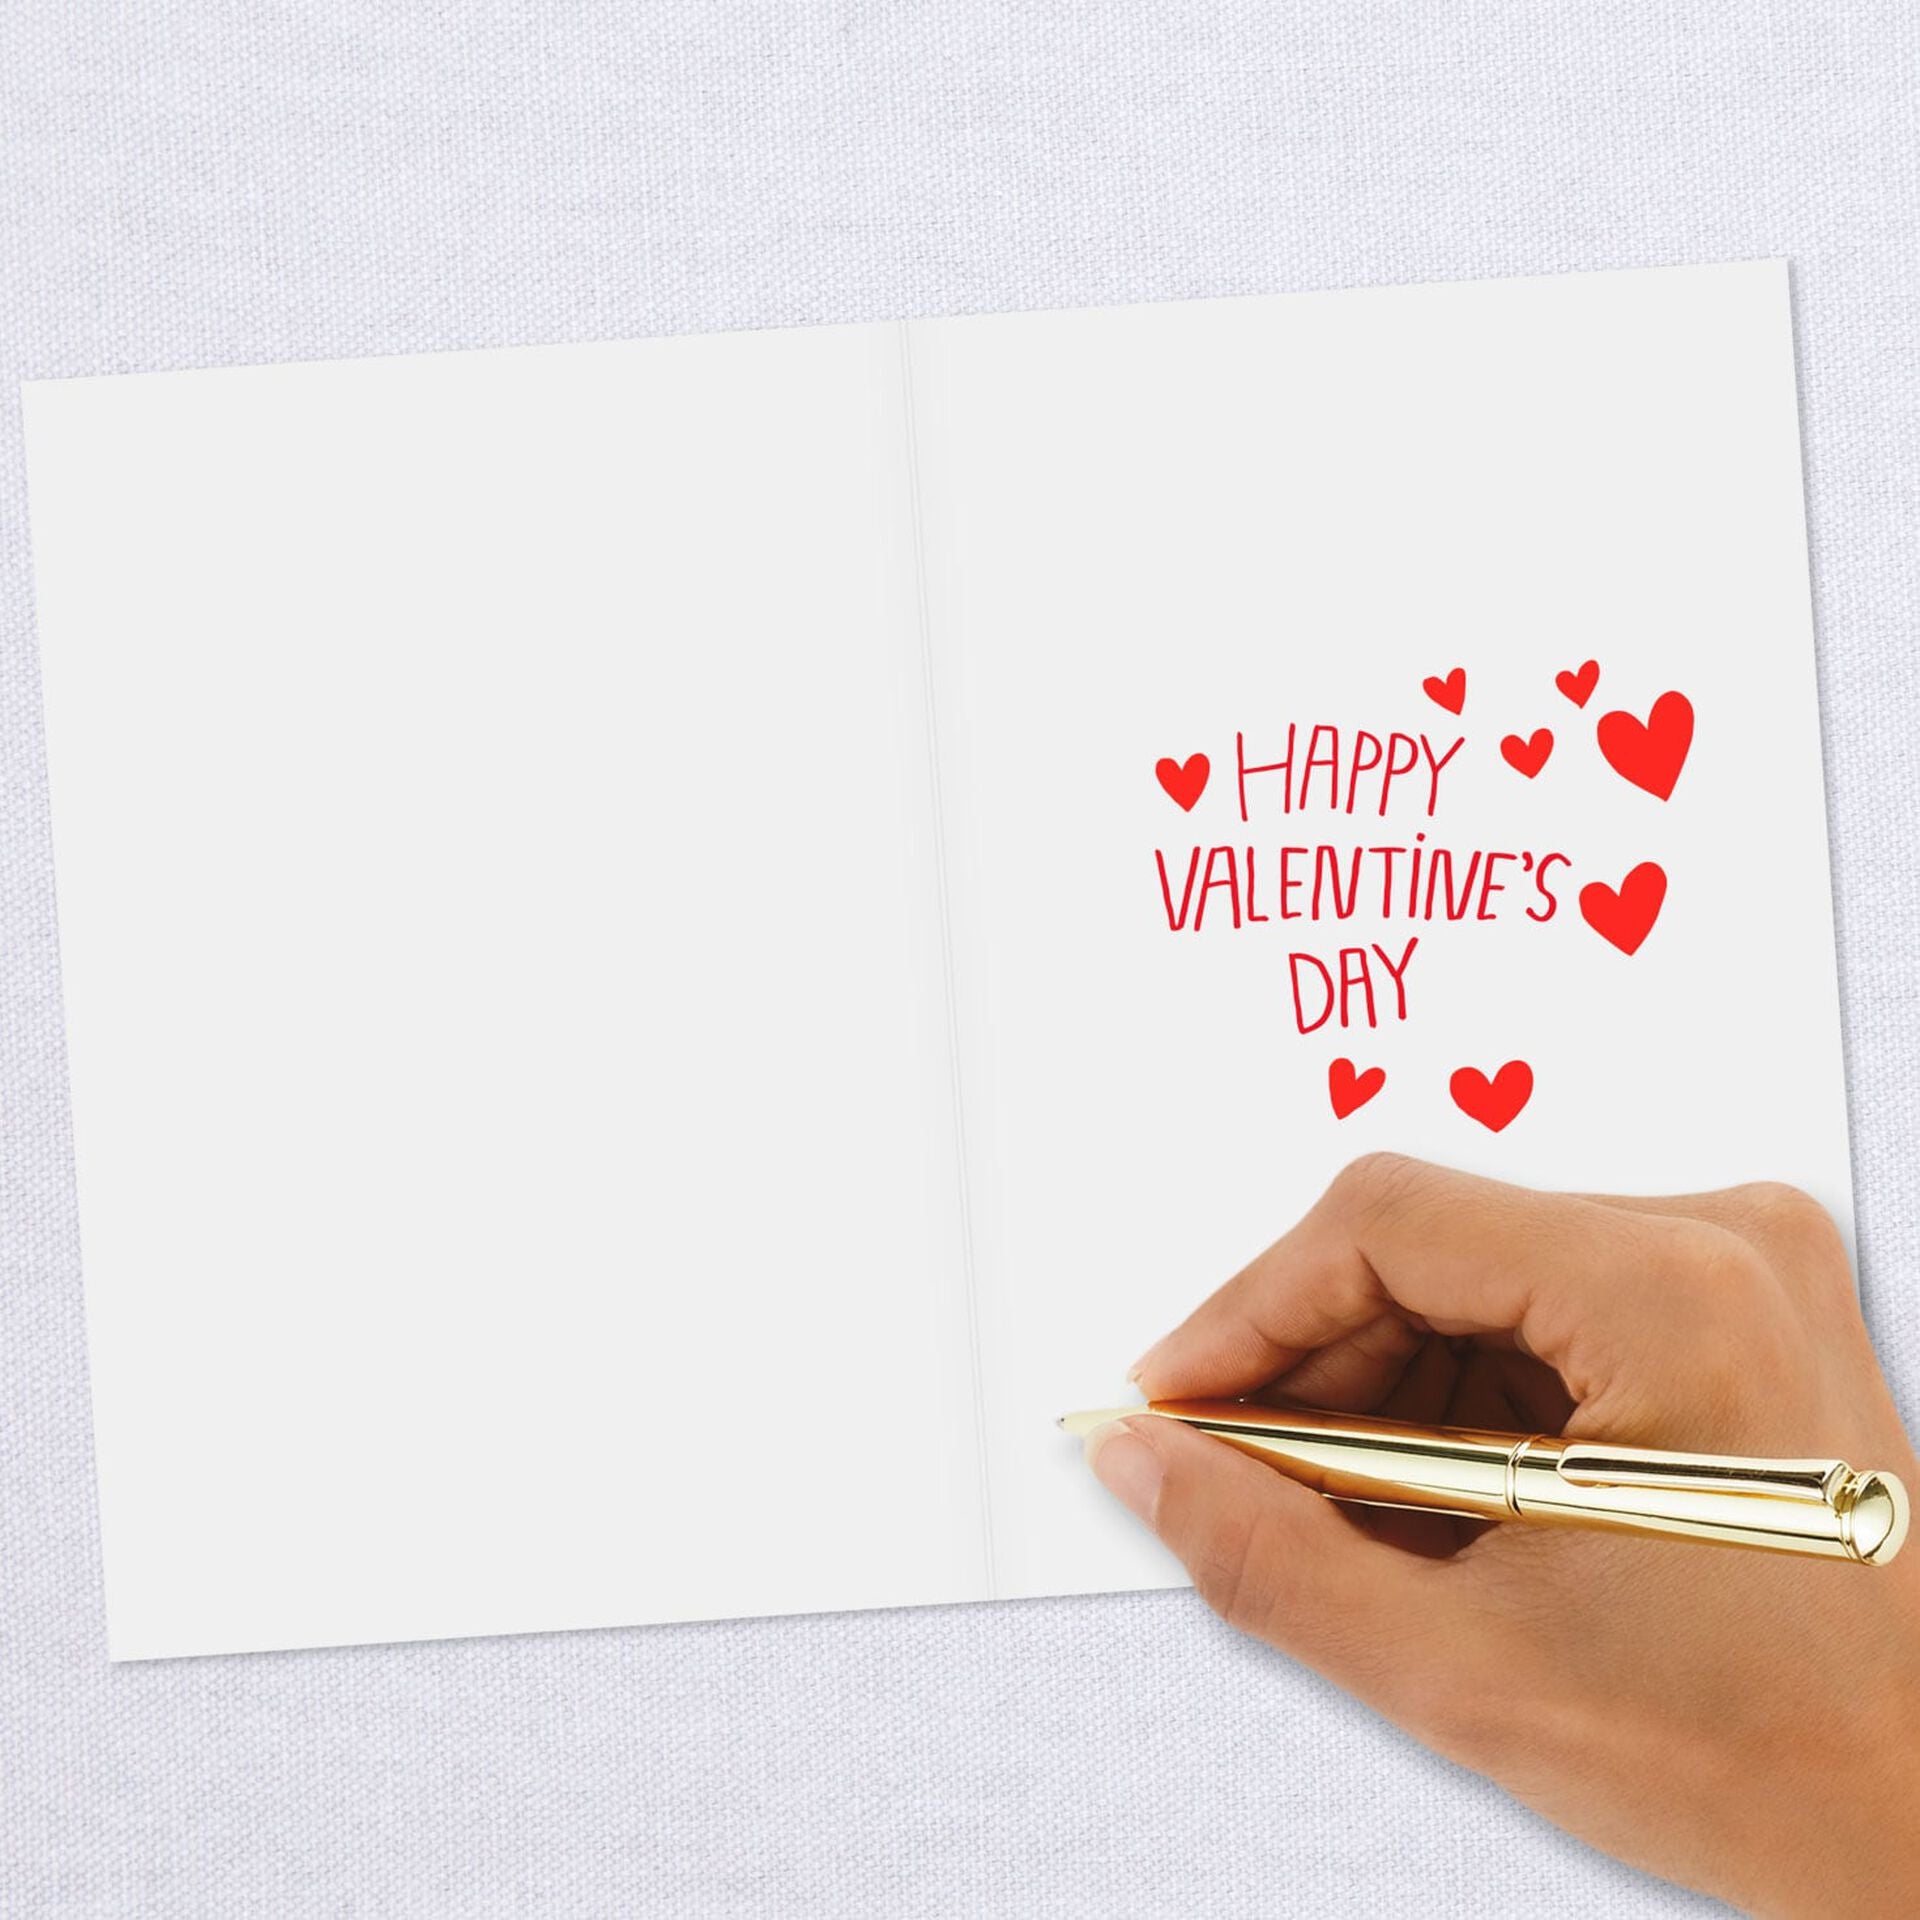 HAPPY
VALENTINE'S
DAY